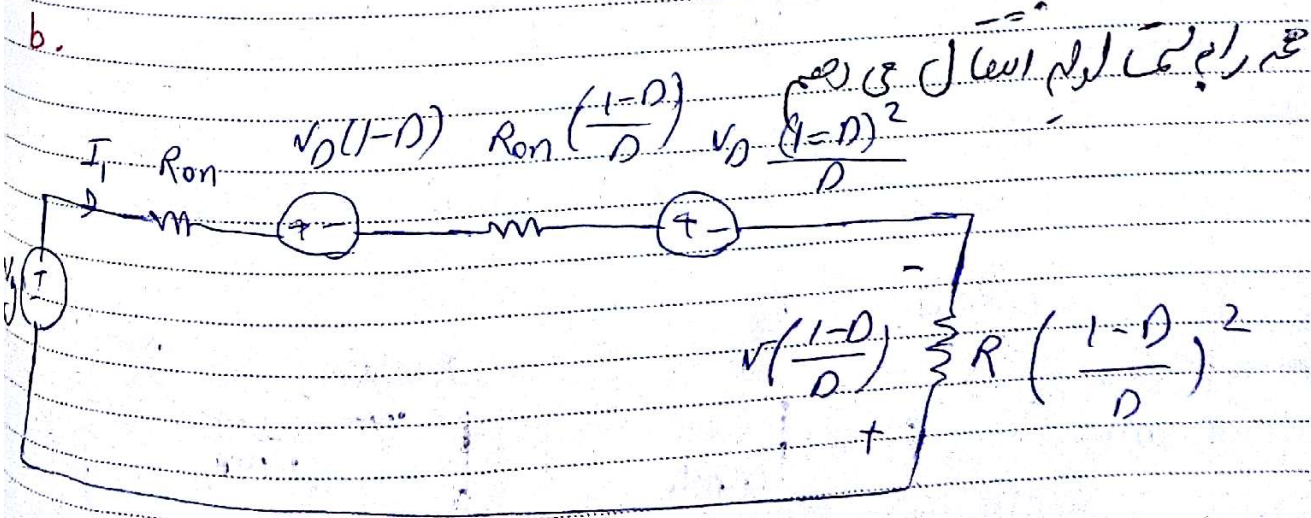 b.
همه را به سمت اولیه انتقال می دهیم
I₁ Ron V_D(1-D) Ron(\frac{1-D}{D}) V_D\frac{(1-D)^2}{D}
+ - + -
Vg + -
-
V(\frac{1-D}{D}) R(\frac{1-D}{D})^2
+